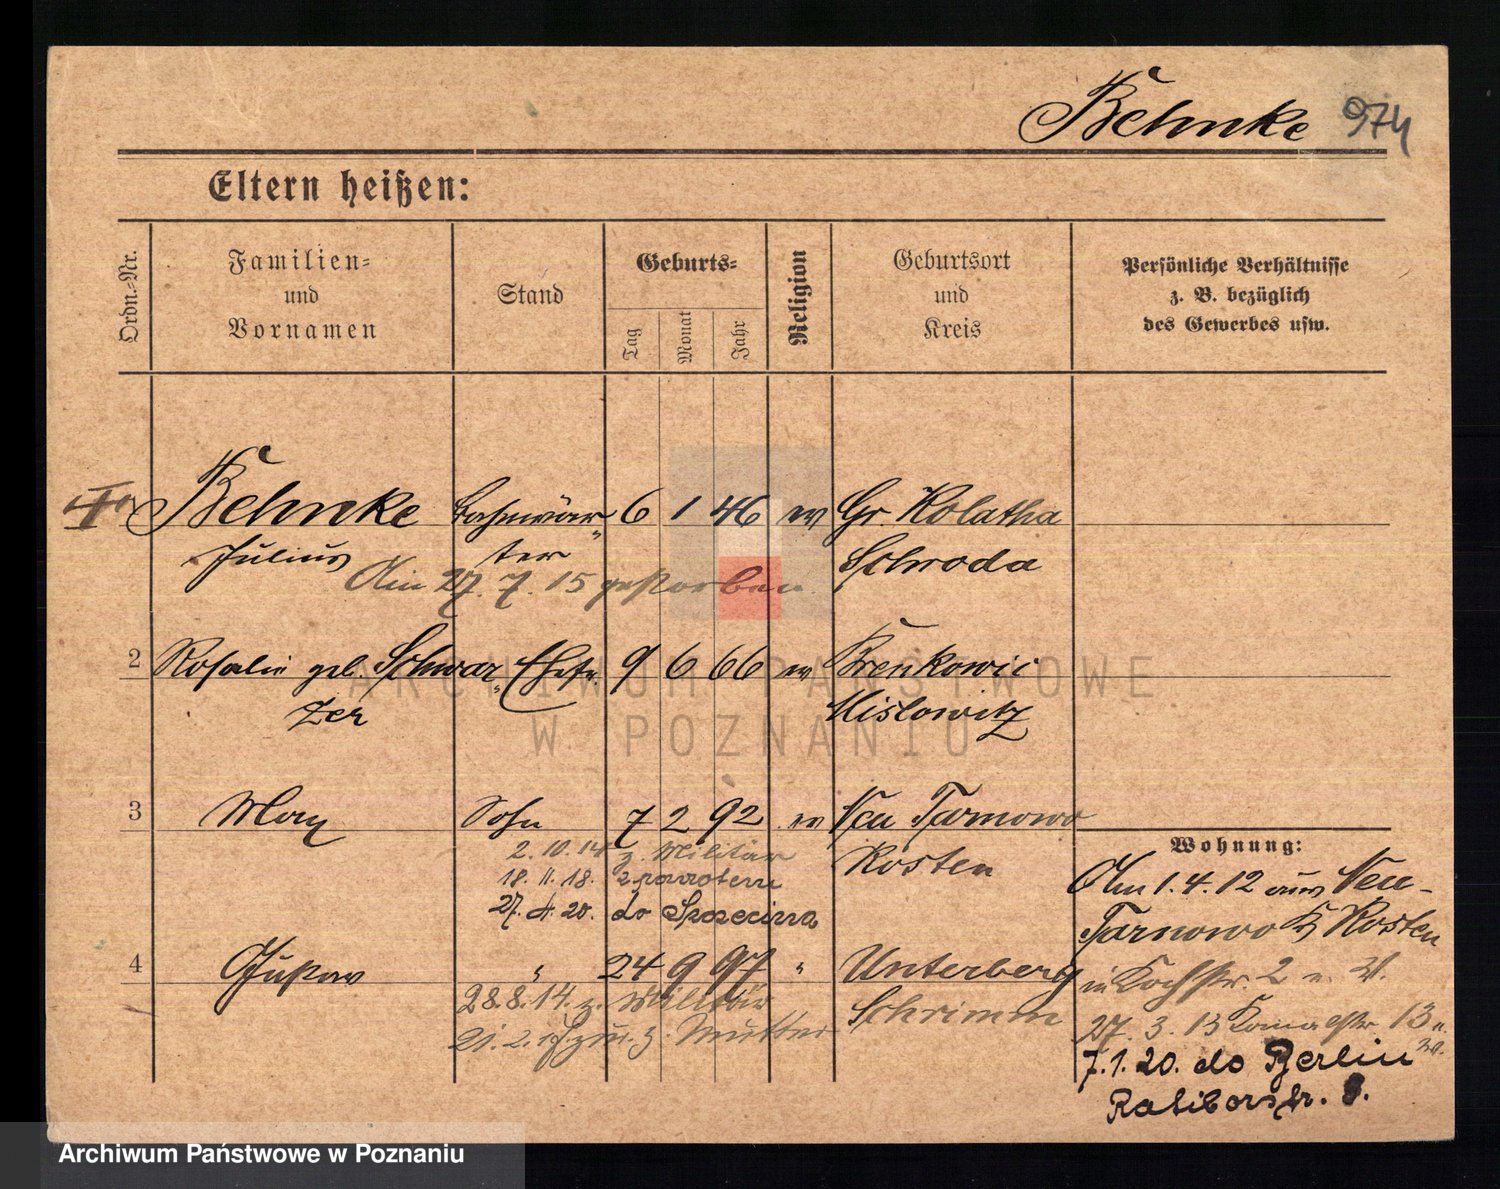 Behnke 974
Eltern heißen:
Ordn.-Nr.
Familien-
und
Vornamen
Stand
Geburts-
Tag
Monat
Jahr
Religion
Geburtsort
und
Kreis
Persönliche Verhältnisse
z. B. bezüglich
des Gewerbes usw.
Behnke Bahnwär- 6 1 46 ev Gr. Kolatka
Julius ter Schroda
Am 27. 7. 15 gestorben
2 Rosalie geb. Schwar- Ehefr. 9 6 66 ev
zer Mislowitz
3 Max Sohn 7 2 92 ev Neu Tarnowo
2. 10. 14 z. Militär Kosten
18. 11. 18. z powrotem
27. 4. 20. do Szczecina
4 Gustav " 24 9 97 " Unterberg
28. 8. 14. z. Militär Schrimm
z. Mutter
Wohnung:
Am 1. 4. 12 aus Neu-
Tarnowo Kr Kosten
in Kochstr. 2 u. W.
27. 3. 13
7. 1. 20. do Berlin
Ratiborstr. 8.
ARCHIWUM PAŃSTWOWE
W POZNANIU
Archiwum Państwowe w Poznaniu